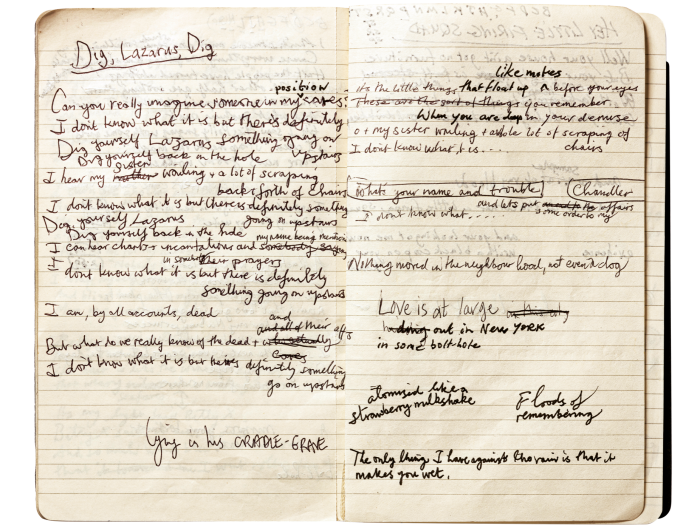 Dig, Lazarus, Dig
position
Can you really imagine someone in my cares?
I don't know what it is but there's definitely
Dig yourself Lazarus something going on
Dig yourself back in the hole upstairs
sister
I hear my mother wailing + a lot of scraping
back + forth of chairs
I don't know what it is but there is definitely something
Dig yourself Lazarus going on upstairs
Dig yourself back in the hole my name being mentioned
I can hear chants + incantations and somebody saying
in somebody their prayers
I don't know what it is but there is definitely
something going on upstairs
I am, by all accounts, dead
and
and all of their
But what do we really know of the dead + who actually
cares
I don't know what it is but there's definitely something
go on upstairs
Lying in his CRADLE-GRAVE
like motes
It's the little things that float up before your eyes
These are the sort of things you remember
When you are deep in your demise
o + my sister wailing + a whole lot of scraping of
I don't know what it is.... chairs
Whats your name and trouble Chandler
and lets put some order to my affairs
I don't know what.....
Nothing moved in the neighbour hood, not even a dog
Love is at large
out in New YORK
in some bolt-hole
atomised like a
strawberry milkshake
Floods of
remembering
The only thing I have against the rain is that it
makes you wet.